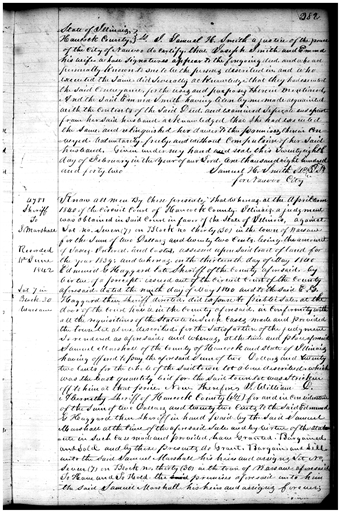 382
State of Illinois
Hancock County ss I, Samuel H. Smith a justice of the peace
of the City of Nauvoo do certify that Joseph Smith and Emma
his wife whose signatures appear to the foregoing deed, and who are
personally known to me to be the persons described in and who
executed the same did severally acknowledge that they had executed
the said conveyance for the uses and purposes therein mentioned,
And the said Emma Smith having been by me made acquainted
with the contents of the said Deed and examined separate and apart
from her said husband acknowledged that she had executed
the same and relinquished her dower to the premises therein con-
veyed voluntarily freely and without compulsion of her said
husband. Given under my hand and seal this Twenty eighth
day of February in the Year of our Lord, One thousand eight hundred
and forty two
Samuel H. Smith J.P.
for Nauvoo City
Sheriff
To
S. Marshall
Recorded
June
1842
Lot 7 in
Block 30
Warsaw
Know all men By these presents, That whereas at the April term
1840 of the Circuit Court of Hancock County Illinois, a judgment
was obtained in said Court in favor of the State of Illinois, against
Lot no. Seven (7) in Block no thirty (30) in the town of Warsaw
for the Sum of two Dollars and twenty two Cents, being the amount
of taxes, Interest and costs, assessed upon said tract of land for
the year 1839; and whereas, on the thirteenth day of May 1840
Edmund G. Haggard late Sheriff of the County aforesaid, by
virtue of a precept issued out of the Circuit Court of the County
aforesaid dated the day of May 1840 and to the said E. G.
Haggard then sheriff directed did expose to public sale at the
door of the Court house in the County aforesaid, in conformity with
all the requisitions of the Statute in such cases made and provided,
the tract above described for the satisfaction of the judgment
so rendered as aforesaid and whereas, at the time and place aforesaid
Samuel Marshall of the County of Hancock and State of Illinois,
having offered to pay the aforesaid Sum of two Dollars and twenty
two Cents for the whole of the said town lot above described which
was the least quantity bid for the said tract was stricken
off to him at that price. Now, Therefore, I, William D.
Abernethy Sheriff of Hancock County for and in consideration
of the Sum of two Dollars and twenty two Cents to the said Edmund
G. Haggard then Sheriff in hand paid by the said Samuel
Marshall at the time of the aforesaid Sale and by virtue of the stat-
ute in such case made and provided, have Granted, Bargained
and Sold and by these presents do Grant, Bargain and Sell
unto the said Samuel Marshall his heirs and assigns, Lot no.
Seven (7) in Block no. thirty (30) in the town of Warsaw aforesaid
To Have and To Hold the premises aforesaid unto him
the said Samuel Marshall his heirs and assigns forever,